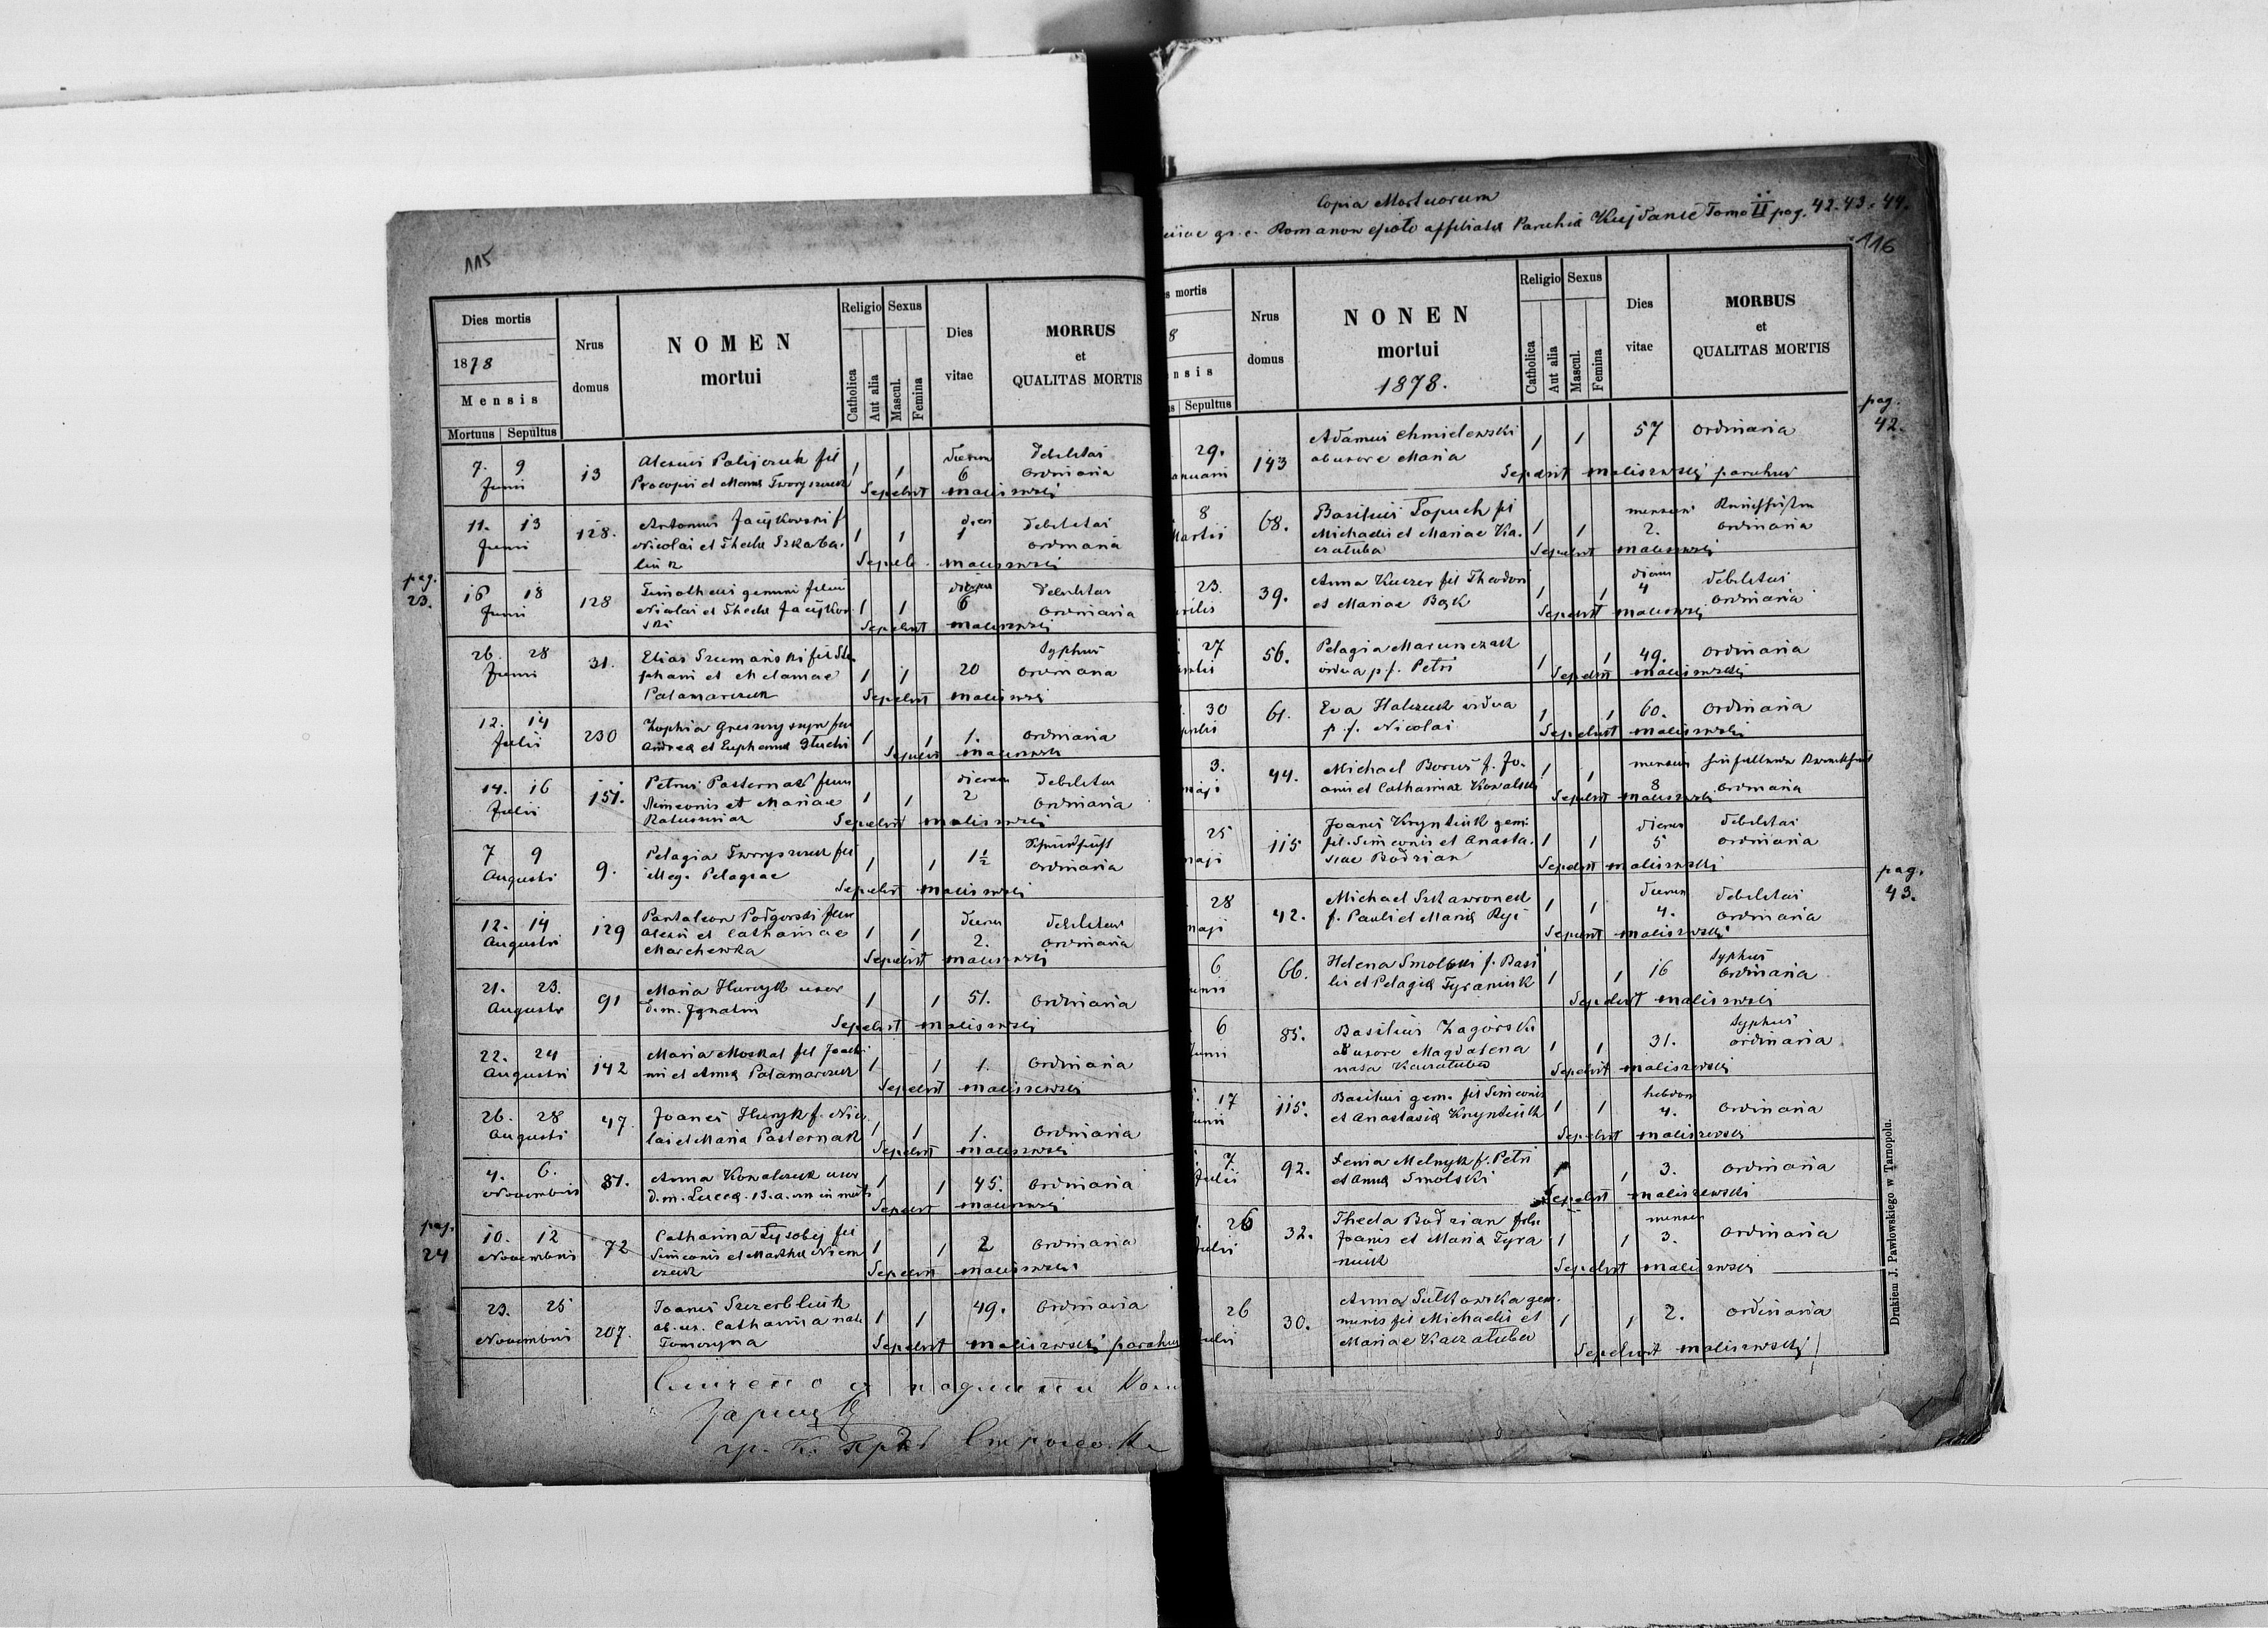 115
Dies mortis
1878
Mensis
Mortuus Sepultus
Nrus domus
NOMEN
mortui
Religio Sexus
Catholica
Aut alia
Mascul.
Femina
Dies vitae
MORRUS
et
QUALITAS MORTIS
7. 9 13 Alexius Palijczuk fil 1 1 dierum debilitas
Junii Procopii et Maria 6 ordinaria
Sepelivit Maliszewski
11. 13 128. Antonius Jacykowski f 1 1 dies debilitas
Junii Nicolai et Thecla Szkaba- 1 ordinaria
liuk Sepeli. Maliszewski
pag. 23.
16 18 128 Timotheus gemini filius 1 1 dierum debilitas
Junii Nicolai et Thecla Jacykow 6 ordinaria
ski Sepelivit Maliszewski
26. 28 31. Elias Szumański fil Ste- 1 1 20 Typhus
Junii phani et Melaniae ordinaria
Palamarczuk Sepelivit Maliszewski
12. 14 230 Zophia fil 1 1 1. ordinaria
Julii Andrea et Euphemia
Sepelivit Maliszewski
14. 16 151. Petrus Pasternak filius 1 1 dierum debilitas
Julii Simeonis et Mariae 2 ordinaria
Sepelivit Maliszewski
7 9 9. Pelagia fil 1 1 1½
Augusti illeg. Pelagiae ordinaria
Sepelivit Maliszewski
12. 14 129 Pantaleon Podgorski filius 1 1 dierum debilitas
Augusti Alexii et Catharinae 2. ordinaria
Marchewka Sepelivit Maliszewski
21. 23. 91 Maria Huryk uxor 1 1 51. ordinaria
Augusti d. m. Ignatii
Sepelivit Maliszewski
22. 24 142 Maria Moskal fil Joachi- 1 1 1. ordinaria
Augusti mi et Anna Palamarczuk
Sepelivit Maliszewski
26. 28 47. Joanes Huryk f. Nico- 1 1 1. ordinaria
Augusti lai et Maria Pasternak
Sepelivit Maliszewski
4. 6. 81. Anna Kowalczuk uxor 1 1 45. ordinaria
Novembris d. m. Lucca. 13. a.
Sepelivit Maliszewski
pag. 24
10. 12 72 Catharina Łysobej fil 1 1 2 ordinaria
Novembris Simeonis et Martha Niem
czuk Sepelivit Maliszewski
23. 25 207. Joanes Szczerbliuk 1 1 49. ordinaria
Novembris ab. ux. Catharina nata
Sepelivit Maliszewski parohus
Copia Mortuorum
gr. c. Romanow affiliata Parohia Kujdanie Tomo II pag. 42. 43. 44.
116
mortis
8
nsis
Sepultus
Nrus domus
NONEN
mortui
1878.
Religio Sexus
Catholica
Aut alia
Mascul.
Femina
Dies vitae
MORBUS
et
QUALITAS MORTIS
pag. 42.
29. 143 Adamus Chmielewski 1 1 57 ordinaria
anuarii ab uxore Maria
Sepelivit Maliszewski parohus
8 68. Basilius Topuch fil 1 1 mensium
Martii Michaelis et Mariae Ka- 2. ordinaria
czałuba Sepelivit Maliszewski
23. 39. Anna Kuczer fil Theodori 1 1 dierum debilitas
rilis et Mariae Bąk 4 ordinaria
Sepelivit Maliszewski
27 56. Pelagia Marunczak 1 1 49. ordinaria
vidua p. f. Petri
Sepelivit Maliszewski
30 61. Eva Halczuk vidua 1 1 60. ordinaria
p. f. Nicolai
Sepelivit Maliszewski
3. 44. Michael Borus f. Jo- 1 1 mensium
maji anis et Catharinae Kowalski 8 ordinaria
Sepelivit Maliszewski
25 115 Joanes Knyntiuk gem. 1 1 dierum debilitas
maji fil. Simeonis et Anasta- 5 ordinaria
siae Bodzian Sepelivit Maliszewski
pag. 43.
28 42. Michael Szkawronek 1 1 dierum debilitas
maji f. Pauli et Maria 4. ordinaria
Sepelivit Maliszewski
6 66. Helena Smolski f. Basi 1 1 16 Typhus
unii lii et Pelagia Tyraniuk ordinaria
Sepelivit Maliszewski
6 85. Basilius Zagórski 1 1 31. Typhus
unii ab uxore Magdalena ordinaria
nata Kaczałuba Sepelivit Maliszewski
17 115. Basilius gem. fil Simeonis 1 1 hebdom ordinaria
unii et Anastasia Knyntiuk 4.
Sepelivit Maliszewski
7 92. Xenia Melnyk f. Petri 1 1 3. ordinaria
Julii et Anna Smolski
Sepelivit Maliszewski
26 32. Thecla Bodzian filia 1 1 mensium ordinaria
Julii Joanis et Maria Tyra 3.
niuk Sepelivit Maliszewski
26 30. Anna Sulkowska gem- 1 1 2. ordinaria
Julii minis fil Michaelis et
Mariae Kaczałuba Sepelivit Maliszewski
Drukiem J. Pawłowskiego w Tarnopolu.